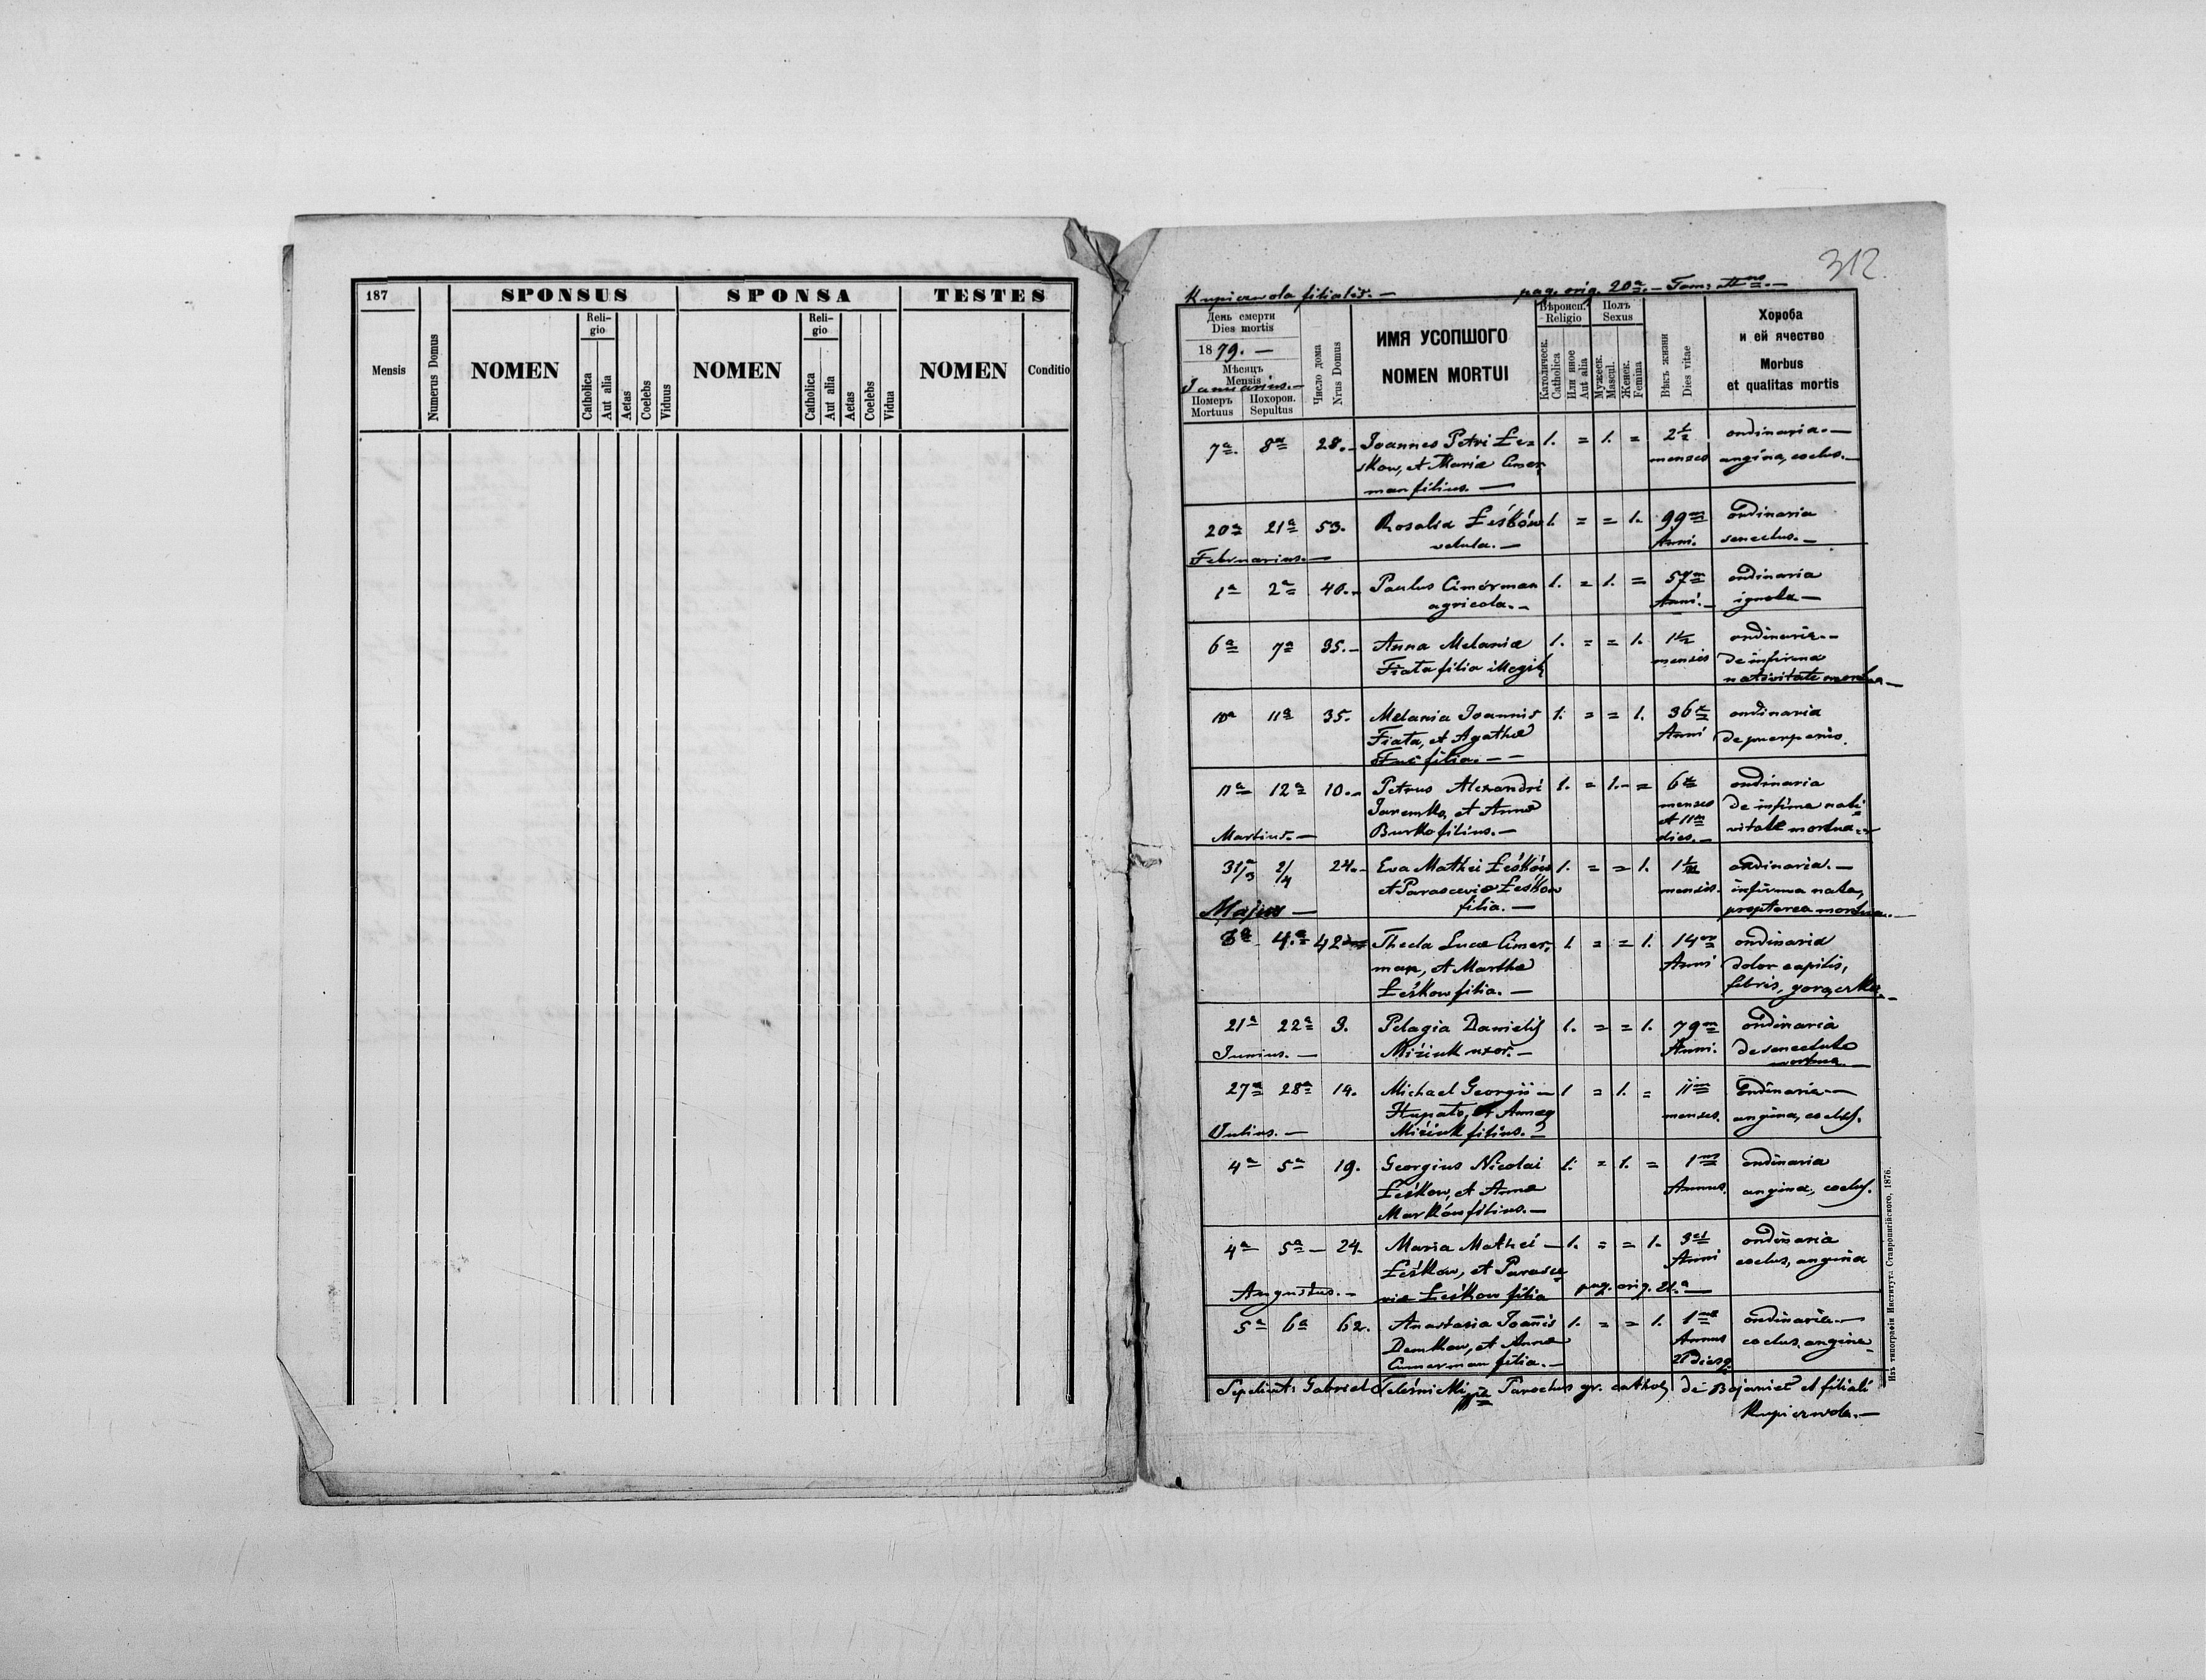 187
Mensis
Numerus Domus
SPONSUS
NOMEN
Reli-
gio
Catholica
Aut alia
Aetas
Coelebs
Viduus
SPONSA
NOMEN
Reli-
gio
Catholica
Aut alia
Aetas
Coelebs
Vidua
TESTES
NOMEN
Conditio
312.
Kupiczwola filialis. — pag. orig. 20a. —
День смерти
Dies mortis
1879. —
Мѣсяцъ
Mensis
Januarius. —
Померъ
Mortuus
Похорон.
Sepultus
Число дома
Nrus Domus
ИМЯ УСОПШОГО
NOMEN MORTUI
Вѣроисп.
Religio
Католическ.
Catholica
Или инное
Aut alia
Полъ
Sexus
Мужеск.
Mascul.
Женск.
Femina
Вѣкъ жизни
Dies vitae
Хороба
и ей ячество
Morbus
et qualitas mortis
7a. 8a 28. — Joannes Petri Łe= 1. = 1. = 2 1/2 ordinaria. —
śkow, et Maria Cimer menses angina, coclus. —
man filius. —
20a 21a 53. Rosalia Leśków 1. = = 1. 99m ordinaria
vetula. — Anni. senectus. —
Februarius. —
1a 2a 40. — Paulus Cimerman 1. = 1. = 57m ordinaria
agricola. — Anni. — ignota —
6a 7a 35. — Anna Melania 1. = = 1. 1 1/2 ordinaria. —
Fiata filia illegit mensis de infirma
nativitate mortua —
10a 11a 35. Melania Joannis 1. = = 1. 36x ordinaria
Fiata, et Agatha Anni de puerperio.
filia. —
11a 12a 10. — Petrus Alexandri 1. = 1. — = 6x ordinaria
Jaremko, et Anna menses de infirma nati
Burko filius. — et 11m vitate mortua. —
dies. —
Martius. —
31/3 2/4 24. — Eva Mathei Leśków 1. = = 1. 1 1/2 ordinaria. —
et Parascevia Leśkow mensis. infirma nata,
filia. — propterea mortua. —
Majus —
3a 4.a 42 Thecla Lucae Cimer= 1. = = 1. 14m ordinaria
man, et Martha Anni dolor capitis,
Leśkow filia. — febris, gorączka. —
21a 22a 3. Pelagia Danielis 1. = = 1. 79m ordinaria
Miziuk uxor. — Anni. de senectute
mortua. —
Junius. —
27a 28a 14. Michael Georgii 1 = 1. = 11m ordinaria —
Hupalo, et Anna menses. angina, coclus.
Miziuk filius. —
Julius. —
4a 5a 19. Georgius Nicolai 1. = 1. = 1ms ordinaria
Leśkow, et Anna Annus. angina, coclus.
Markow filius. —
4a 5a — 24. Maria Mathei — 1. = = 1. 3es ordinaria
Leśkow, et Parasce Anni coclus, angina
via Leśkow filia pag. orig. 21.a —
Augustus. —
5a 6a 62. Anastasia Joannis 1. = = 1. 1ms ordinaria —
Demkow, et Anna Annus coclus, angina
Cimerman filia. — 21 dies
Sepelivit: Gabriel Parochus gr. cathol. de Bojaniec et filiali
Kupiczwola. —
Изъ типографіи Института Ставропигійского, 1876.